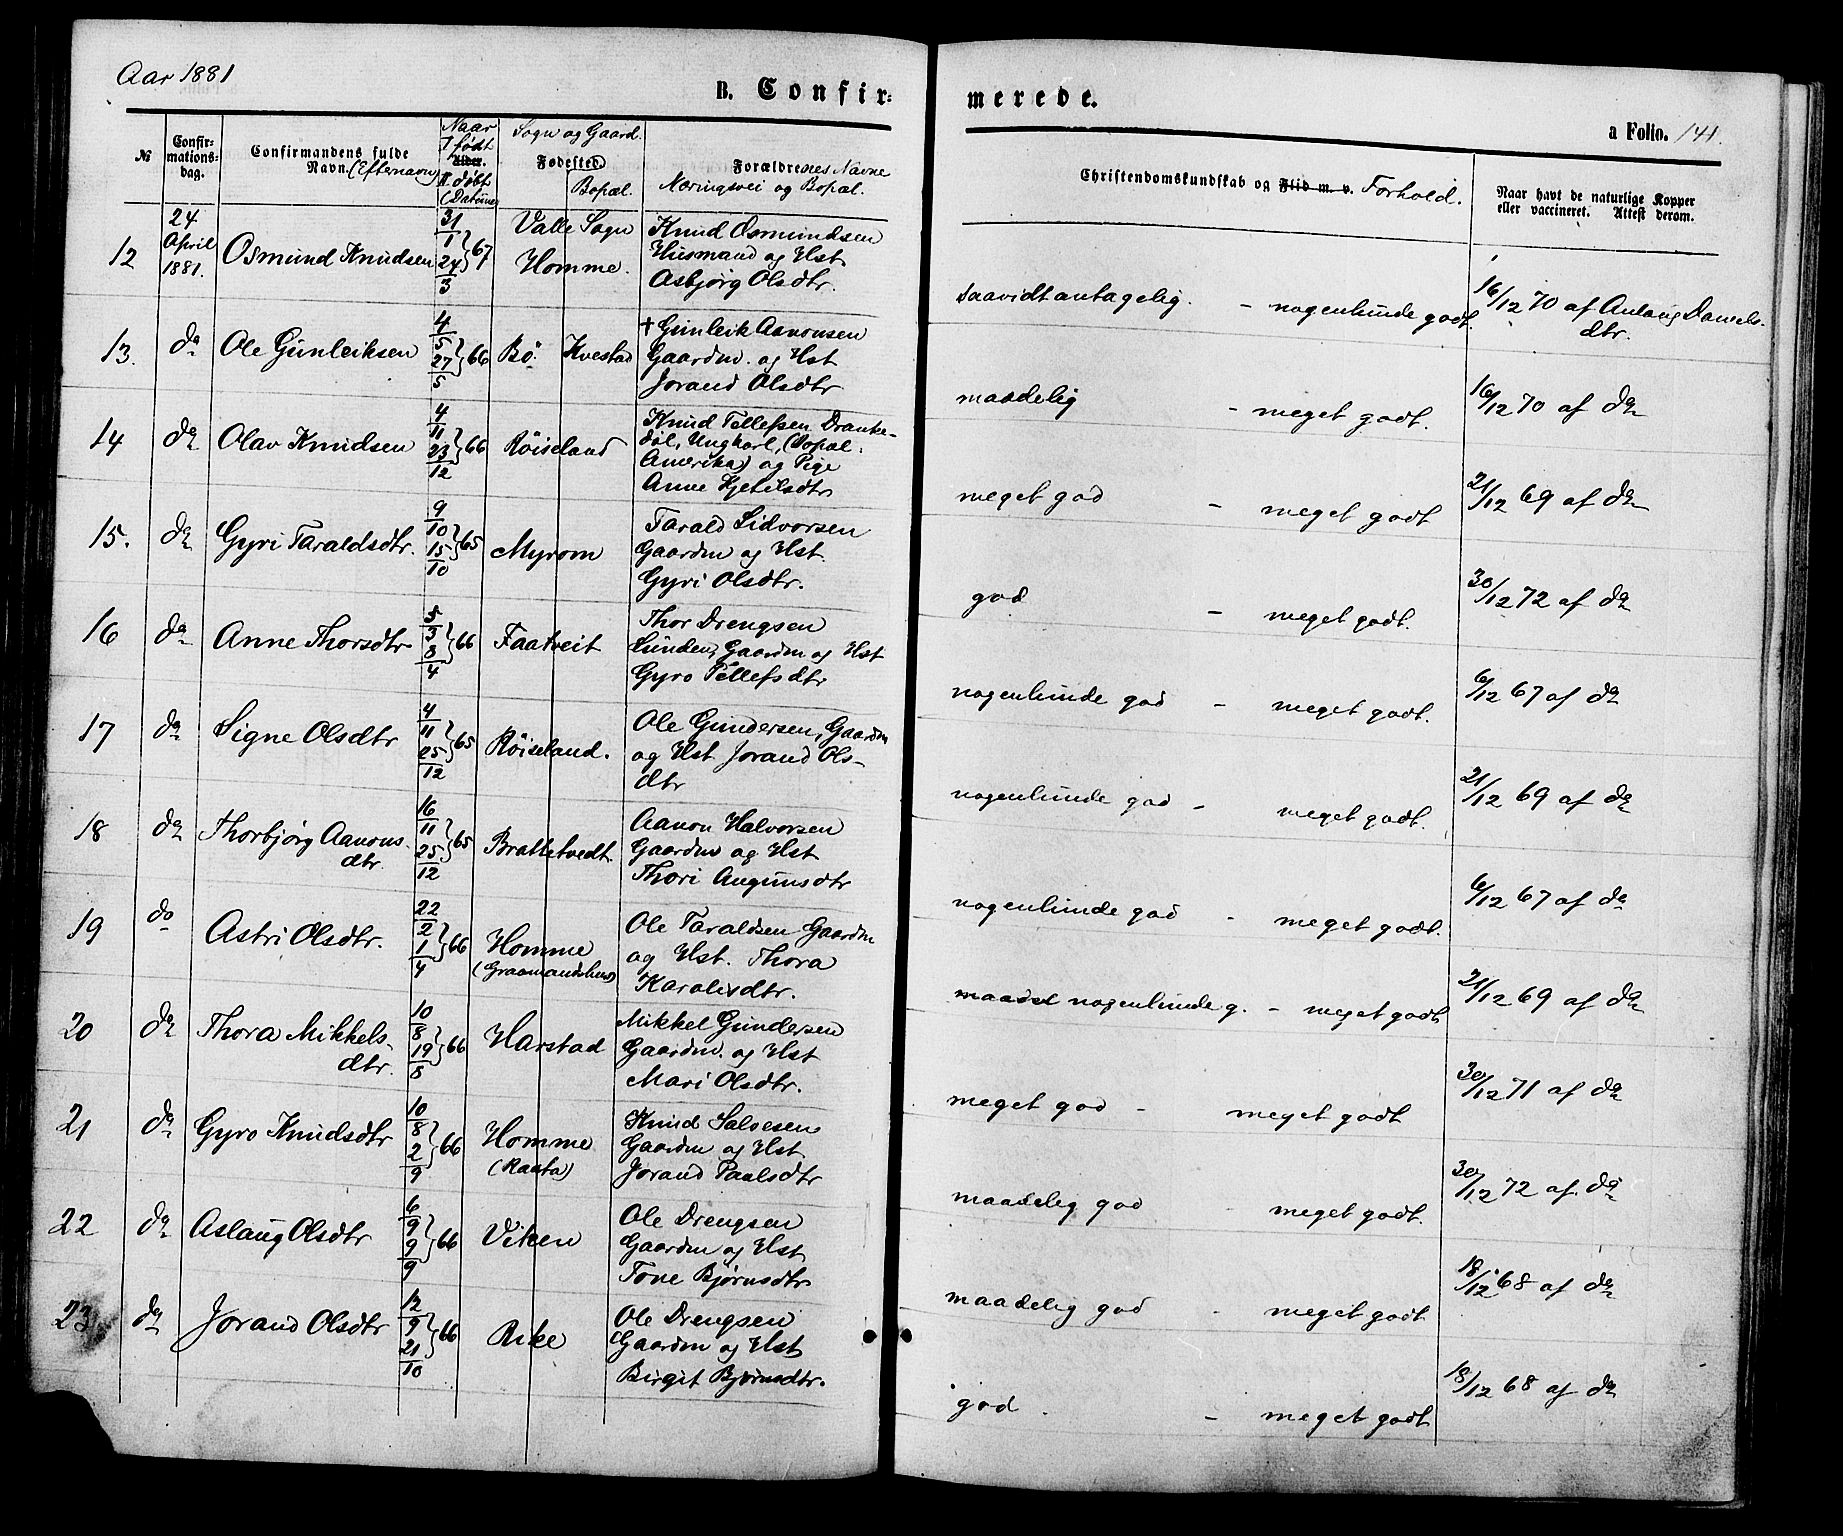 Aar 1881
B. Confir:
merede.
a Folio. 141.
№
Confir-
mations-
dag.
Confirmandens fulde
Navn. (Efternavn)
Naar
I født
Alder.
II døbt
(Datum)
Sogn og Gaard.
Fødested.
Bopæl.
Forældrenes Navne
Næringsvei og Bopæl.
Christendomskundskab og Flid m. v. Forhold.
Naar havt de naturlige Kopper
eller vaccineret. Attest derom.
12
24
April
1881.
Osmund Knudsen
31/1 24/3 } 67
Valle Sogn
Homme.
Knud Osmundsen
Husmand og Hst
Asbjørg Olsdtr.
saavidt antagelig. - nogenlunde godt.
16/12 70 af Anlaug Daniels-
dtr.
13.
do
Ole Gunleiksen
4/5 27/5 } 66
Bø. Kvestad
† Gunleik Aanonsen
Gaardm. og Hst
Jorand Olsdtr
maadelig - meget godt.
16/12 70 af do
14
do
Olav Knudsen
4/11 23/12 } 66
Røiseland
Knud Tellefsen Dranke-
døl, Ungkarl, (Bopæl.
Amerika) og Pige
Anne Kjetilsdtr
meget god - meget godt
21/12 69 af do
15.
do
Gyri Taraldsdtr.
9/10 15/10 } 65
Myrom
Tarald Sidvorsen
Gaardm og Hst.
Gyri Olsdtr.
god - meget godt.
30/12 72 af do
16
do
Anne Thorsdtr
5/3 8/4 } 66
Faatveit
Thor Drengsen
Lunden, Gaardm og Hst
Gyro Tellefsdtr
nogenlunde god - meget godt.
6/12 67 af do
17
do
Signe Olsdtr
4/11 25/12 } 65
Røiseland.
Ole Gundersen, Gaardm
og Hst Jorand Ols-
dtr
nogenlunde god - meget godt.
21/12 69 af do
18
do
Thorbjørg Aanons-
dtr.
16/11 25/12 } 65
Brattetvedt.
Aanon Halvorsen
Gaardm og Hst
Thori Augunsdtr
nogenlunde god - meget godt.
6/12 67 af do
19
do
Astri Olsdtr.
22/2 1/4 } 66
Homme
(Graamandshus)
Ole Taraldsen Gaardm
og Hst. Thora
Karolisdtr.
maadel nogenlunde g. - meget godt
21/12 69 af do
20
do
Thora Mikkels-
dtr.
10/8 19/8 } 66
Harstad
Mikkel Gundersen
Gaardm. og Hst
Mari Olsdtr.
meget god - meget godt
30/12 71 af do
21
do
Gyro Knudsdtr
10/8 2/9 } 66
Homme
(Raata)
Knud Salvesen
Gaardm og Hst
Jorand Paalsdtr
maadelig god - meget godt.
30/12 72 af. do
22
do
Aslaug Olsdtr
6/9 9/9 } 66
Viken
Ole Drengsen
Gaardm og Hst
Tone Bjørnsdtr
maadelig god - meget godt
18/12 68 af do
23
do
Jorand Olsdtr
12/9 21/10 } 66
Rike
Ole Drengsen
Gaardm og Hst
Birgit Bjørnsdtr.
god - meget godt
18/12 68 af do